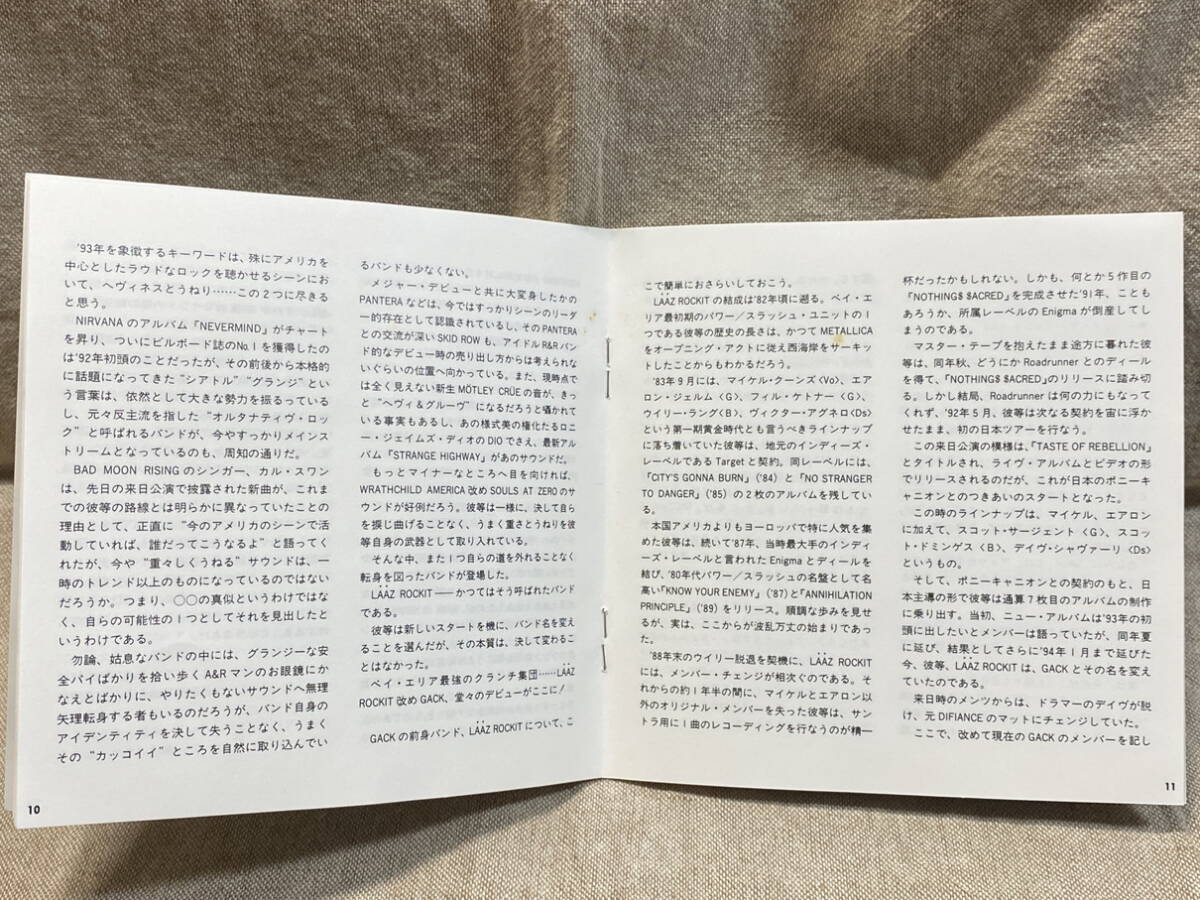 '93年を象徴するキーワードは、殊にアメリカを
中心としたラウドなロックを聴かせるシーンにお
いて、ヘヴィネスとうねり……この2つに尽きると
思う。
NIRVANAのアルバム「NEVERMIND」がチャート
を昇り、ついにビルボード誌のNo.1を獲得したの
は'92年初頭のことだったが、その前後から本格的
に話題になってきた“シアトル”“グランジ”とい
う言葉は、依然として大きな勢力を振るっている
し、元々反主流を指した“オルタナティヴ・ロッ
ク”と呼ばれるバンドが、今やすっかりメインス
トリームとなっているのも、周知の通りだ。
BAD MOON RISINGのシンガー、カル・スワン
は、先日の来日公演で披露された新曲が、これま
での彼等の路線とは明らかに異なっていたことの
理由として、正直に“今のアメリカのシーンで活
動していれば、誰だってこうなるよ”と語ってく
れたが、今や“重々しくうねる”サウンドは、一
時のトレンド以上のものになっているのではない
だろうか。つまり、○○の真似というわけではな
く、自らの可能性の1つとしてそれを見出したと
いうわけである。
勿論、姑息なバンドの中には、グランジーな安
全パイばかりを拾い歩くA&Rマンのお眼鏡にか
なえとばかりに、やりたくもないサウンドへ無理
矢理転身する者もいるのだろうが、バンド自身の
アイデンティティを決して失うことなく、うまく
その“カッコイイ”ところを自然に取り込んでい
るバンドも少なくない。
メジャー・デビューと共に大変身したかの
PANTERAなどは、今ではすっかりシーンのリーダ
ー的存在として認識されているし、そのPANTERA
との交流が深いSKID ROWも、アイドルR&Rバン
ド的なデビュー時の売り出し方からは考えられな
いぐらいの位置へ向かっている。また、現時点で
は全く見えない新生MÖTLEY CRÜEの音が、きっ
と“ヘヴィ&グルーヴ”になるだろうと囁かれて
いる事実もあるし、あの様式美の権化たるロニ
ー・ジェイムズ・ディオのDIOでさえ、最新アル
バム「STRANGE HIGHWAY」があのサウンドだ。
もっとマイナーなところへ目を向ければ、
WRATHCHILD AMERICA改めSOULS AT ZEROのサ
ウンドが好例だろう。彼等は一様に、決して自ら
を捩じ曲げることなく、うまく重さとうねりを彼
等自身の武器として取り入れている。
そんな中、また1つ自らの道を外れることなく
転身を図ったバンドが登場した。
LÄÄZ ROCKIT――かつてはそう呼ばれたバンド
である。
彼等は新しいスタートを機に、バンド名を変え
ることを選んだが、その本質は、決して変わるこ
とはなかった。
ベイ・エリア最強のクランチ集団……LÄÄZ
ROCKIT改めGACK、堂々のデビューがここに!
GACKの前身バンド、LÄÄZ ROCKITについて、こ
10
こで簡単におさらいしておこう。
LÄÄZ ROCKITの結成は'82年頃に遡る。ベイ・エ
リア最初期のパワー/スラッシュ・ユニットの1
つである彼等の歴史の長さは、かつてMETALLICA
をオープニング・アクトに従え西海岸をサーキッ
トしたことからもわかるだろう。
'83年9月には、マイケル・クーンズ<Vo>、エア
ロン・ジェルム<G>、フィル・ケトナー<G>、
ウイリー・ラング<B>、ヴィクター・アグネロ<Ds>
という第一期黄金時代とも言うべきラインナップ
に落ち着いていた彼等は、地元のインディーズ・
レーベルであるTargetと契約。同レーベルには、
「CITY'S GONNA BURN」('84)と「NO STRANGER
TO DANGER」('85)の2枚のアルバムを残してい
る。
本国アメリカよりもヨーロッパで特に人気を集
めた彼等は、続いて'87年、当時最大手のインディ
ーズ・レーベルと言われたEnigmaとディールを
結び、'80年代パワー/スラッシュの名盤として名
高い「KNOW YOUR ENEMY」('87)と「ANNIHILATION
PRINCIPLE」('89)をリリース。順調な歩みを見せ
るが、実は、ここからが波乱万丈の始まりであっ
た。
'88年末のウイリー脱退を契機に、LÄÄZ ROCKIT
には、メンバー・チェンジが相次ぐのである。そ
れからの約1年半の間に、マイケルとエアロン以
外のオリジナル・メンバーを失った彼等は、サン
トラ用に1曲のレコーディングを行なうのが精一
杯だったかもしれない。しかも、何とか5作目の
「NOTHING$ $ACRED」を完成させた'91年、ことも
あろうか、所属レーベルのEnigmaが倒産してし
まうのである。
マスター・テープを抱えたまま途方に暮れた彼
等は、同年秋、どうにかRoadrunnerとのディール
を得て、「NOTHING$ $ACRED」のリリースに踏み切
る。しかし結局、Roadrunnerは何の力にもなって
くれず、'92年5月、彼等は次なる契約を宙に浮か
せたまま、初の日本ツアーを行なう。
この来日公演の模様は、「TASTE OF REBELLION」
とタイトルされ、ライヴ・アルバムとビデオの形
でリリースされるのだが、これが日本のポニーキ
ャニオンとのつきあいのスタートとなった。
この時のラインナップは、マイケル、エアロン
に加えて、スコット・サージェント<G>、スコッ
ト・ドミンゲス<B>、デイヴ・シャヴァーリ<Ds>
というもの。
そして、ポニーキャニオンとの契約のもと、日
本主導の形で彼等は通算7枚目のアルバムの制作
に乗り出す。当初、ニュー・アルバムは'93年の初
頭に出したいとメンバーは語っていたが、同年夏
に延び、結果としてさらに'94年1月まで延びた
今、彼等、LÄÄZ ROCKITは、GACKとその名を変え
ていたのである。
来日時のメンツからは、ドラマーのデイヴが脱
け、元DIFIANCEのマットにチェンジしていた。
ここで、改めて現在のGACKのメンバーを記し
11